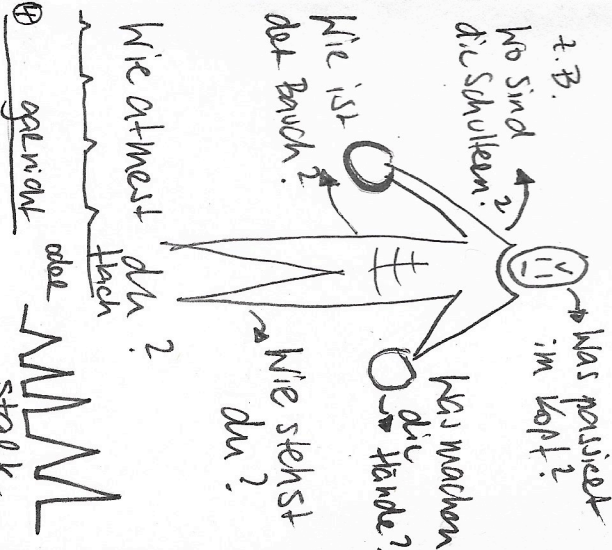 z.B.
Wo sind
die Schultern?
Was passiert
im Kopf?
Wie ist
der Bauch?
Was machen
die
Hände?
Wie stehst
du?
Wie atmest
du?
flach
④ gar nicht
oder
stark